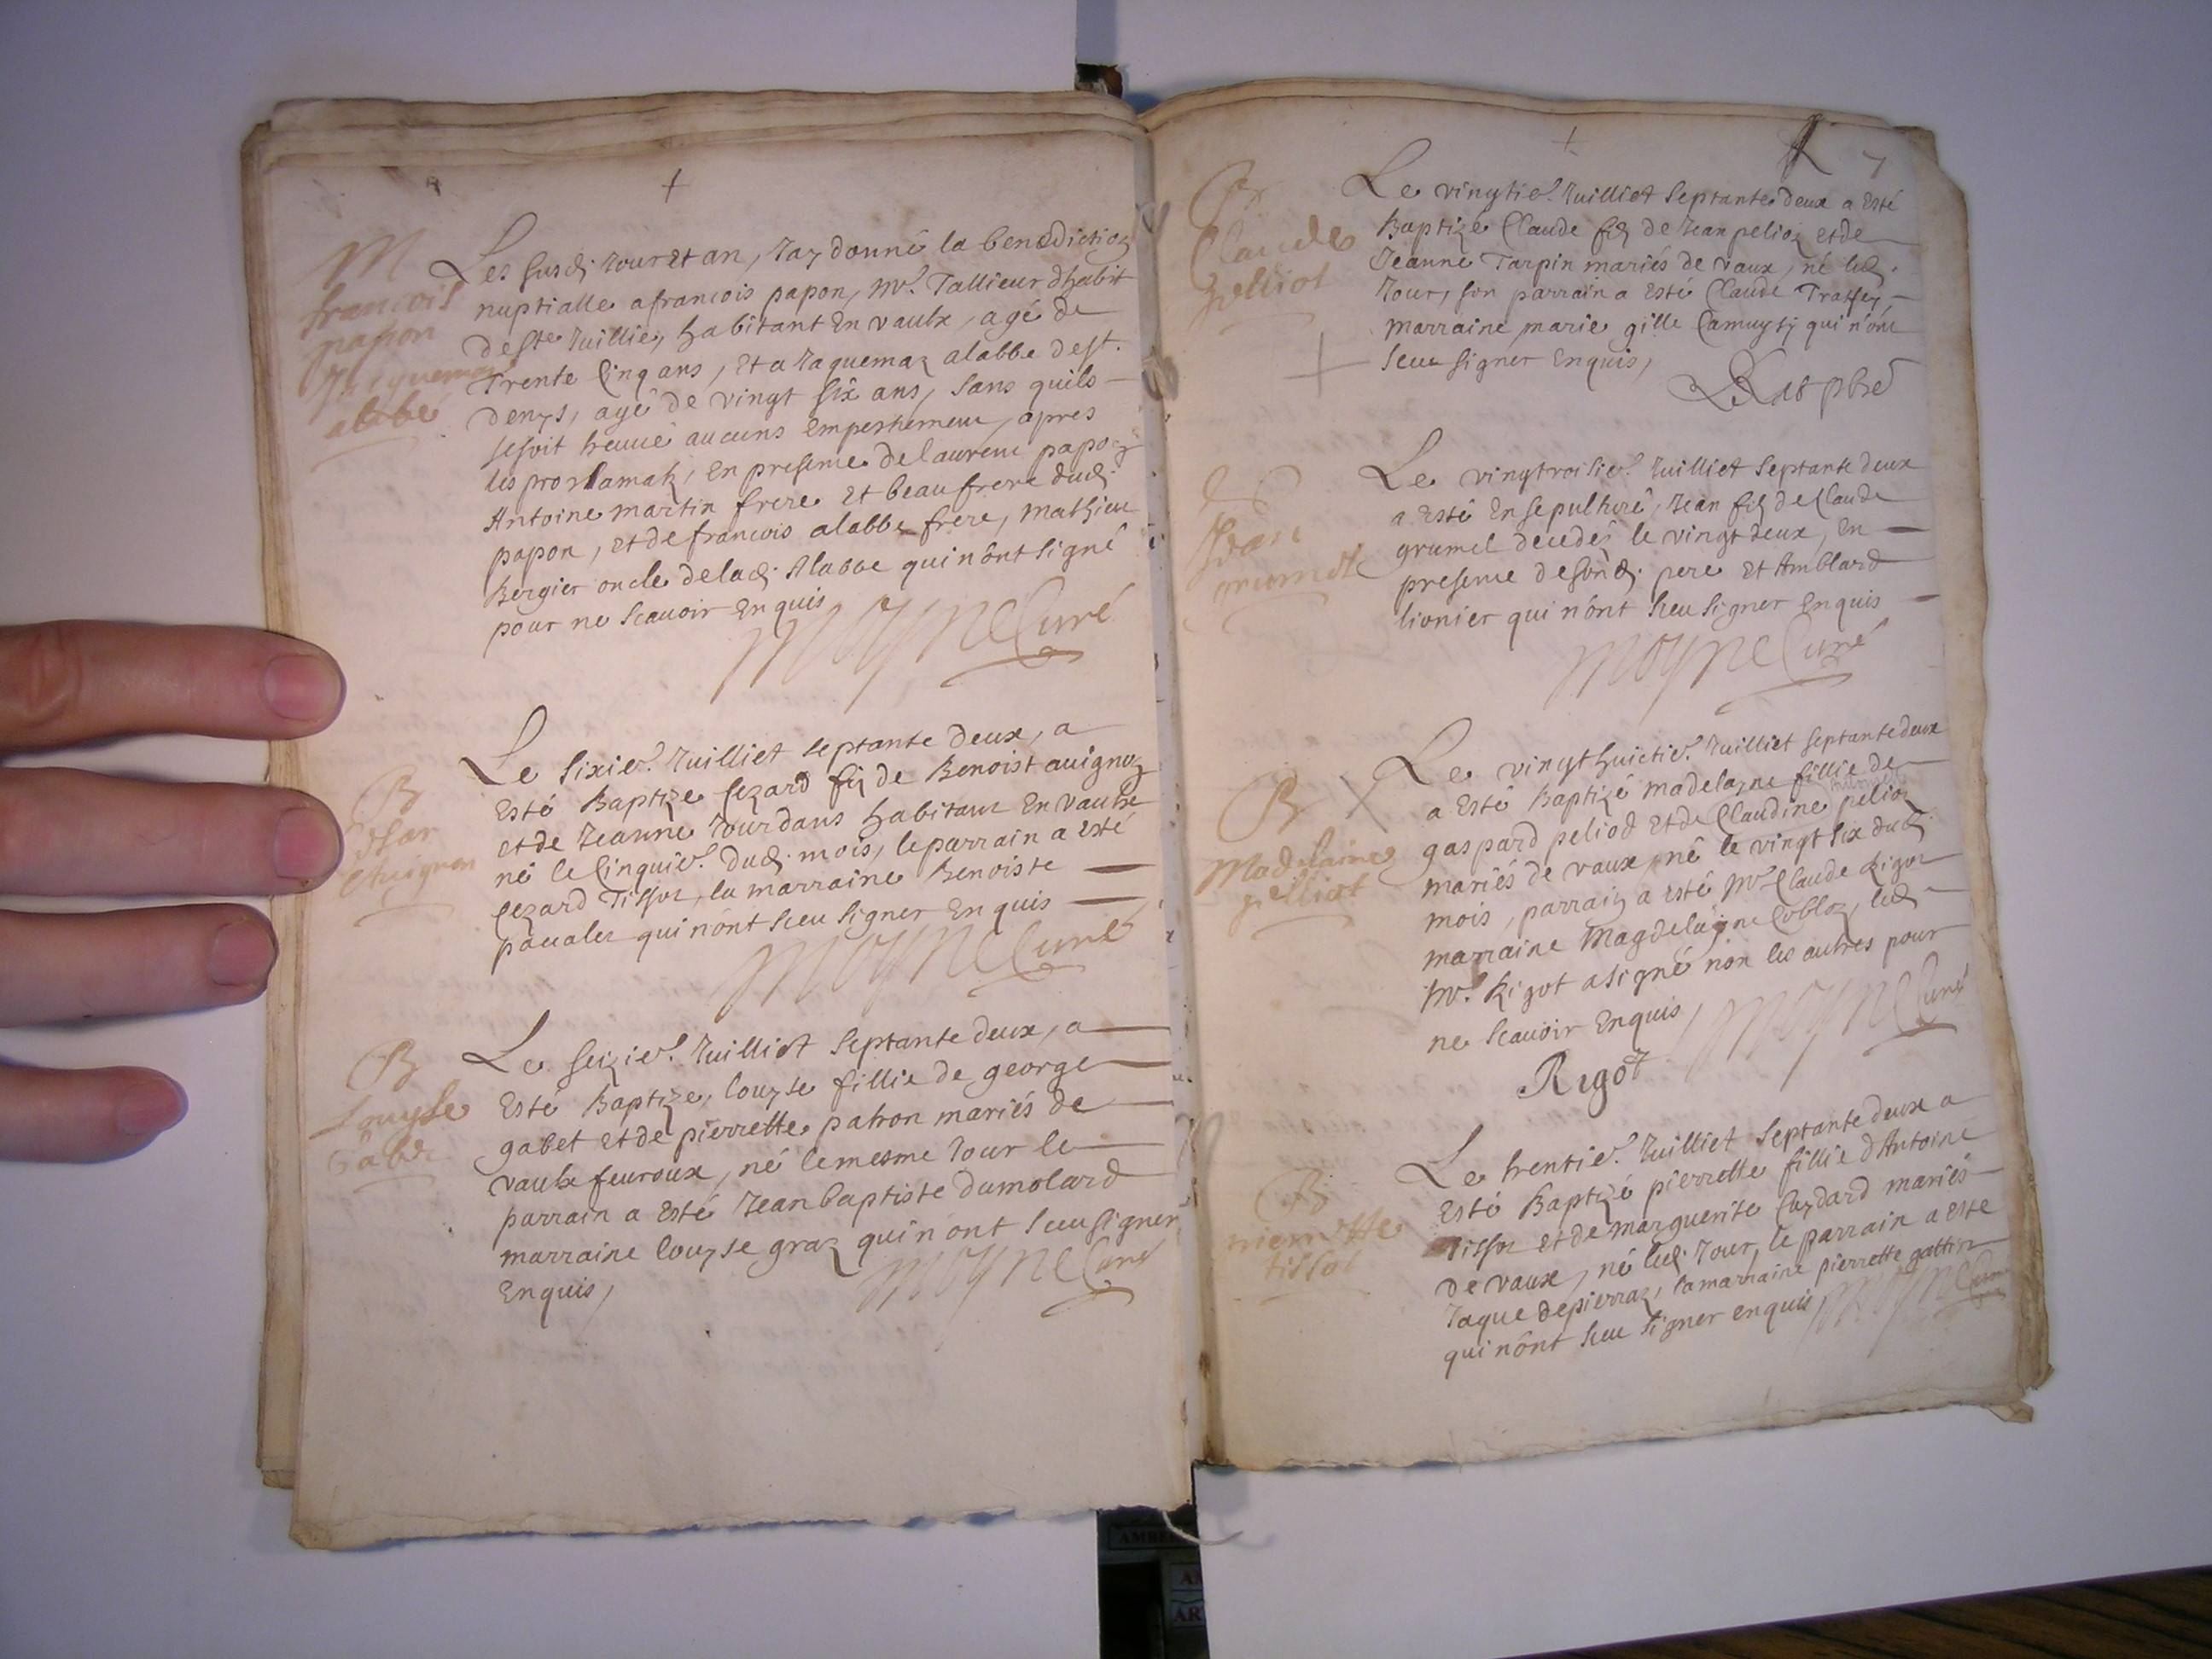 +
M
francois
papon
Jaquemaz
alabbé
Les susd. Jour et an, Jay donné la benediction
nuptialle a francois papon, Mr. Tallieur dhabit
deste Juillie, habitant En vaulx, agé de
Trente Cinq ans, Et a Jaquemaz alabbe dest.
denys, agé de vingt six ans, sans quils
sesoit treuué aucuns Empeschement, apres
les proclamatz, En presence de laurent papoz
Antoine martin frere Et beaufrere dud.
papon, Et de francois alabbe frere, mathieu
Bergier oncle de lad. Alabbe qui nônt signé
pour ne scauoir Enquis
Moyne Curé
B
Cesar
Auignon
Le sixie. Juilliet septante deux, a
Esté Baptize Cezard fiz de Benoist auignoz
Et de Jeanne Jourdans habitant En vaulx
né le Cinquie. dud. mois, le parrain a Esté
Cezard Tissot, la marraine Benoiste
paualez qui nônt sceu signer Enquis
Moyne Curé
B
Louyse
Gabet
Le seizie. Juilliet septante deux, a
Esté Baptize, louyse fillie de george
gabet Et de pierrette patron mariés de
vaulx feuroux, né le mesme Jour le
parrain a Esté Jean baptiste dumolard
marraine louyse graz qui nont sceu signer
Enquis,
Moyne Curé
+
7
B
Claude
pelliot
Le vingtie. Juilliet septante deux a Esté
Baptizé Claude fiz de Jean pelioz et de
Jeanne Tarpin mariés de vaux, né led.
Jour, son parrain a Esté Claude
marraine marie gille qui nônt
sceu signer Enquis,
pbre
Jean
grumel
Le vingtroisie. Juilliet septante deux
a Esté Ensepulturé, Jean fiz de Claude
grumel decedés le vingt deux, En
presence de sond. pere Et Amblard
lionier qui nônt sceu signer Enquis
Moyne Curé
B
Madelaine
pelliot
Le vingthuictie. Juilliet septante deux
a Esté Baptizé madelayne fillie de
gaspard peliod Et de Claudine pelioz
mariés de vaux, né le vingt six dud.
mois, parraiz a esté Mr. Claude Rigot
marraine Magdelayne Cobloz, led.
Mr. Rigot a signé non les autres pour
ne scauoir Enquis,
Moyne Curé
Rigot
B
pierrette
tissot
Le trentie. Juilliet septante deux a
Esté Baptizé pierrette fillie d'Antoine
Tissot et de marguerite Caydard mariés
de vaux, né led. Jour, le parrain a esté
Jaque depierraz, la marraine pierrette gottin
qui nônt sceu signer enquis,
Moyne Curé